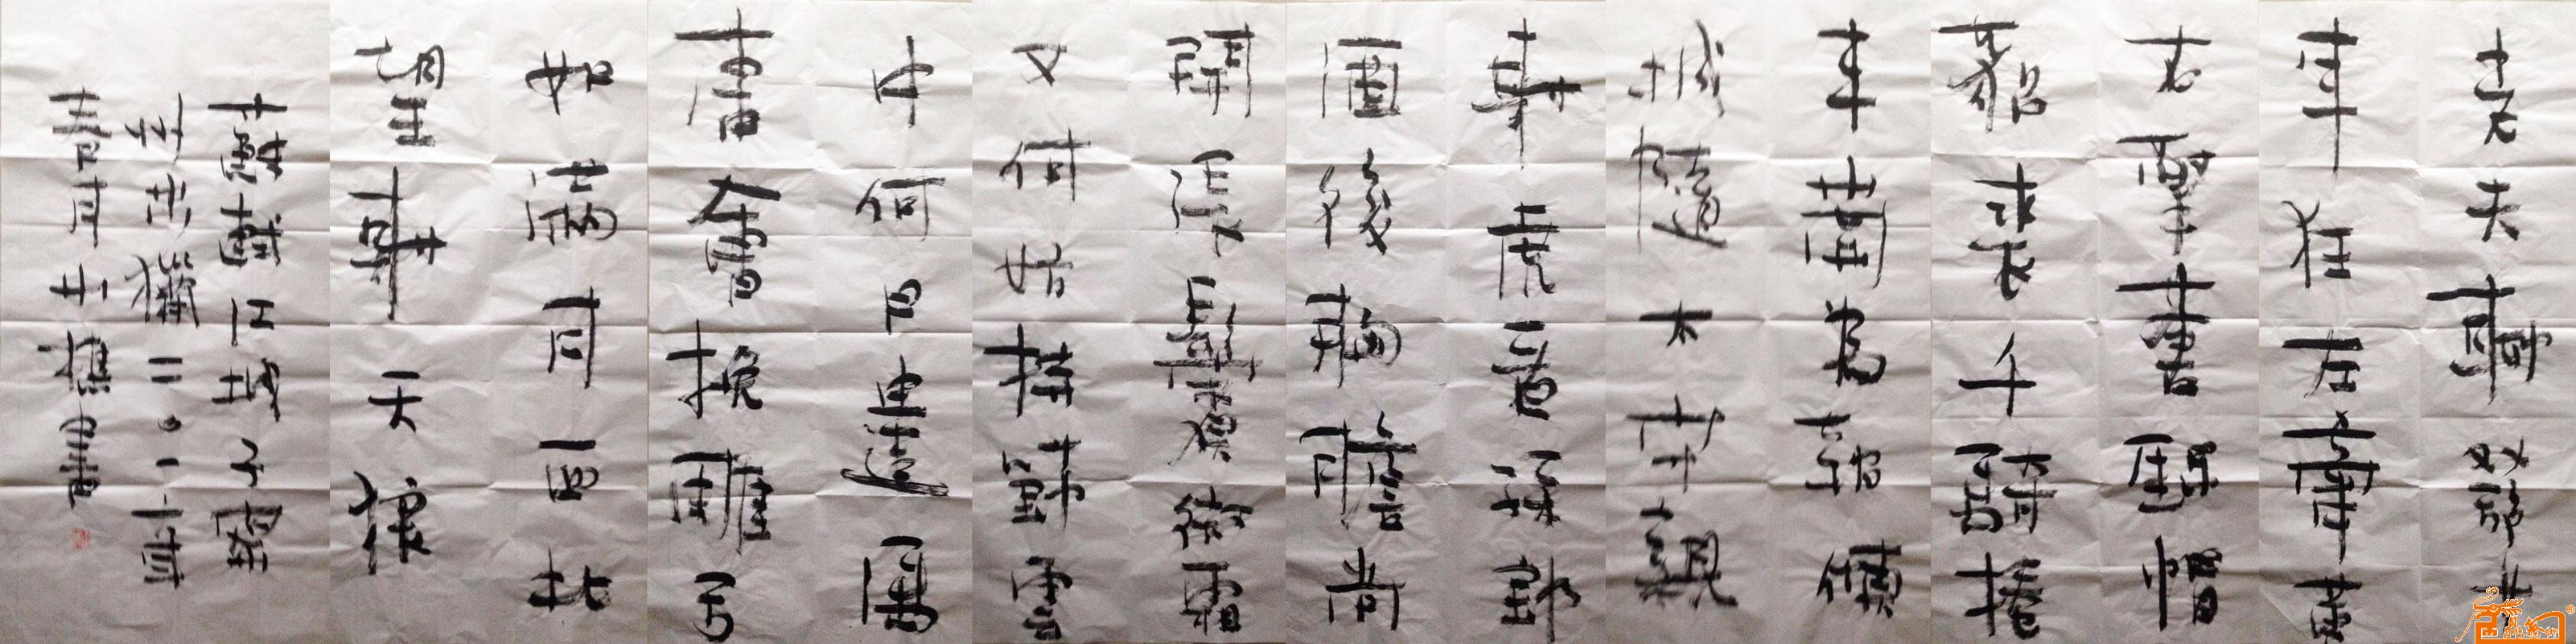 老夫聊發少
年狂左牽黃
右擎蒼錦帽
貂裘千騎捲
平岡為報傾
城隨太守親
射虎看孫郎
酒酣胸膽尚
開張鬢微霜
又何妨持節雲
中何日遣馮
唐會挽雕弓
如滿月西北
望射天狼
蘇軾江城子密
州出獵二〇一
月士樵書